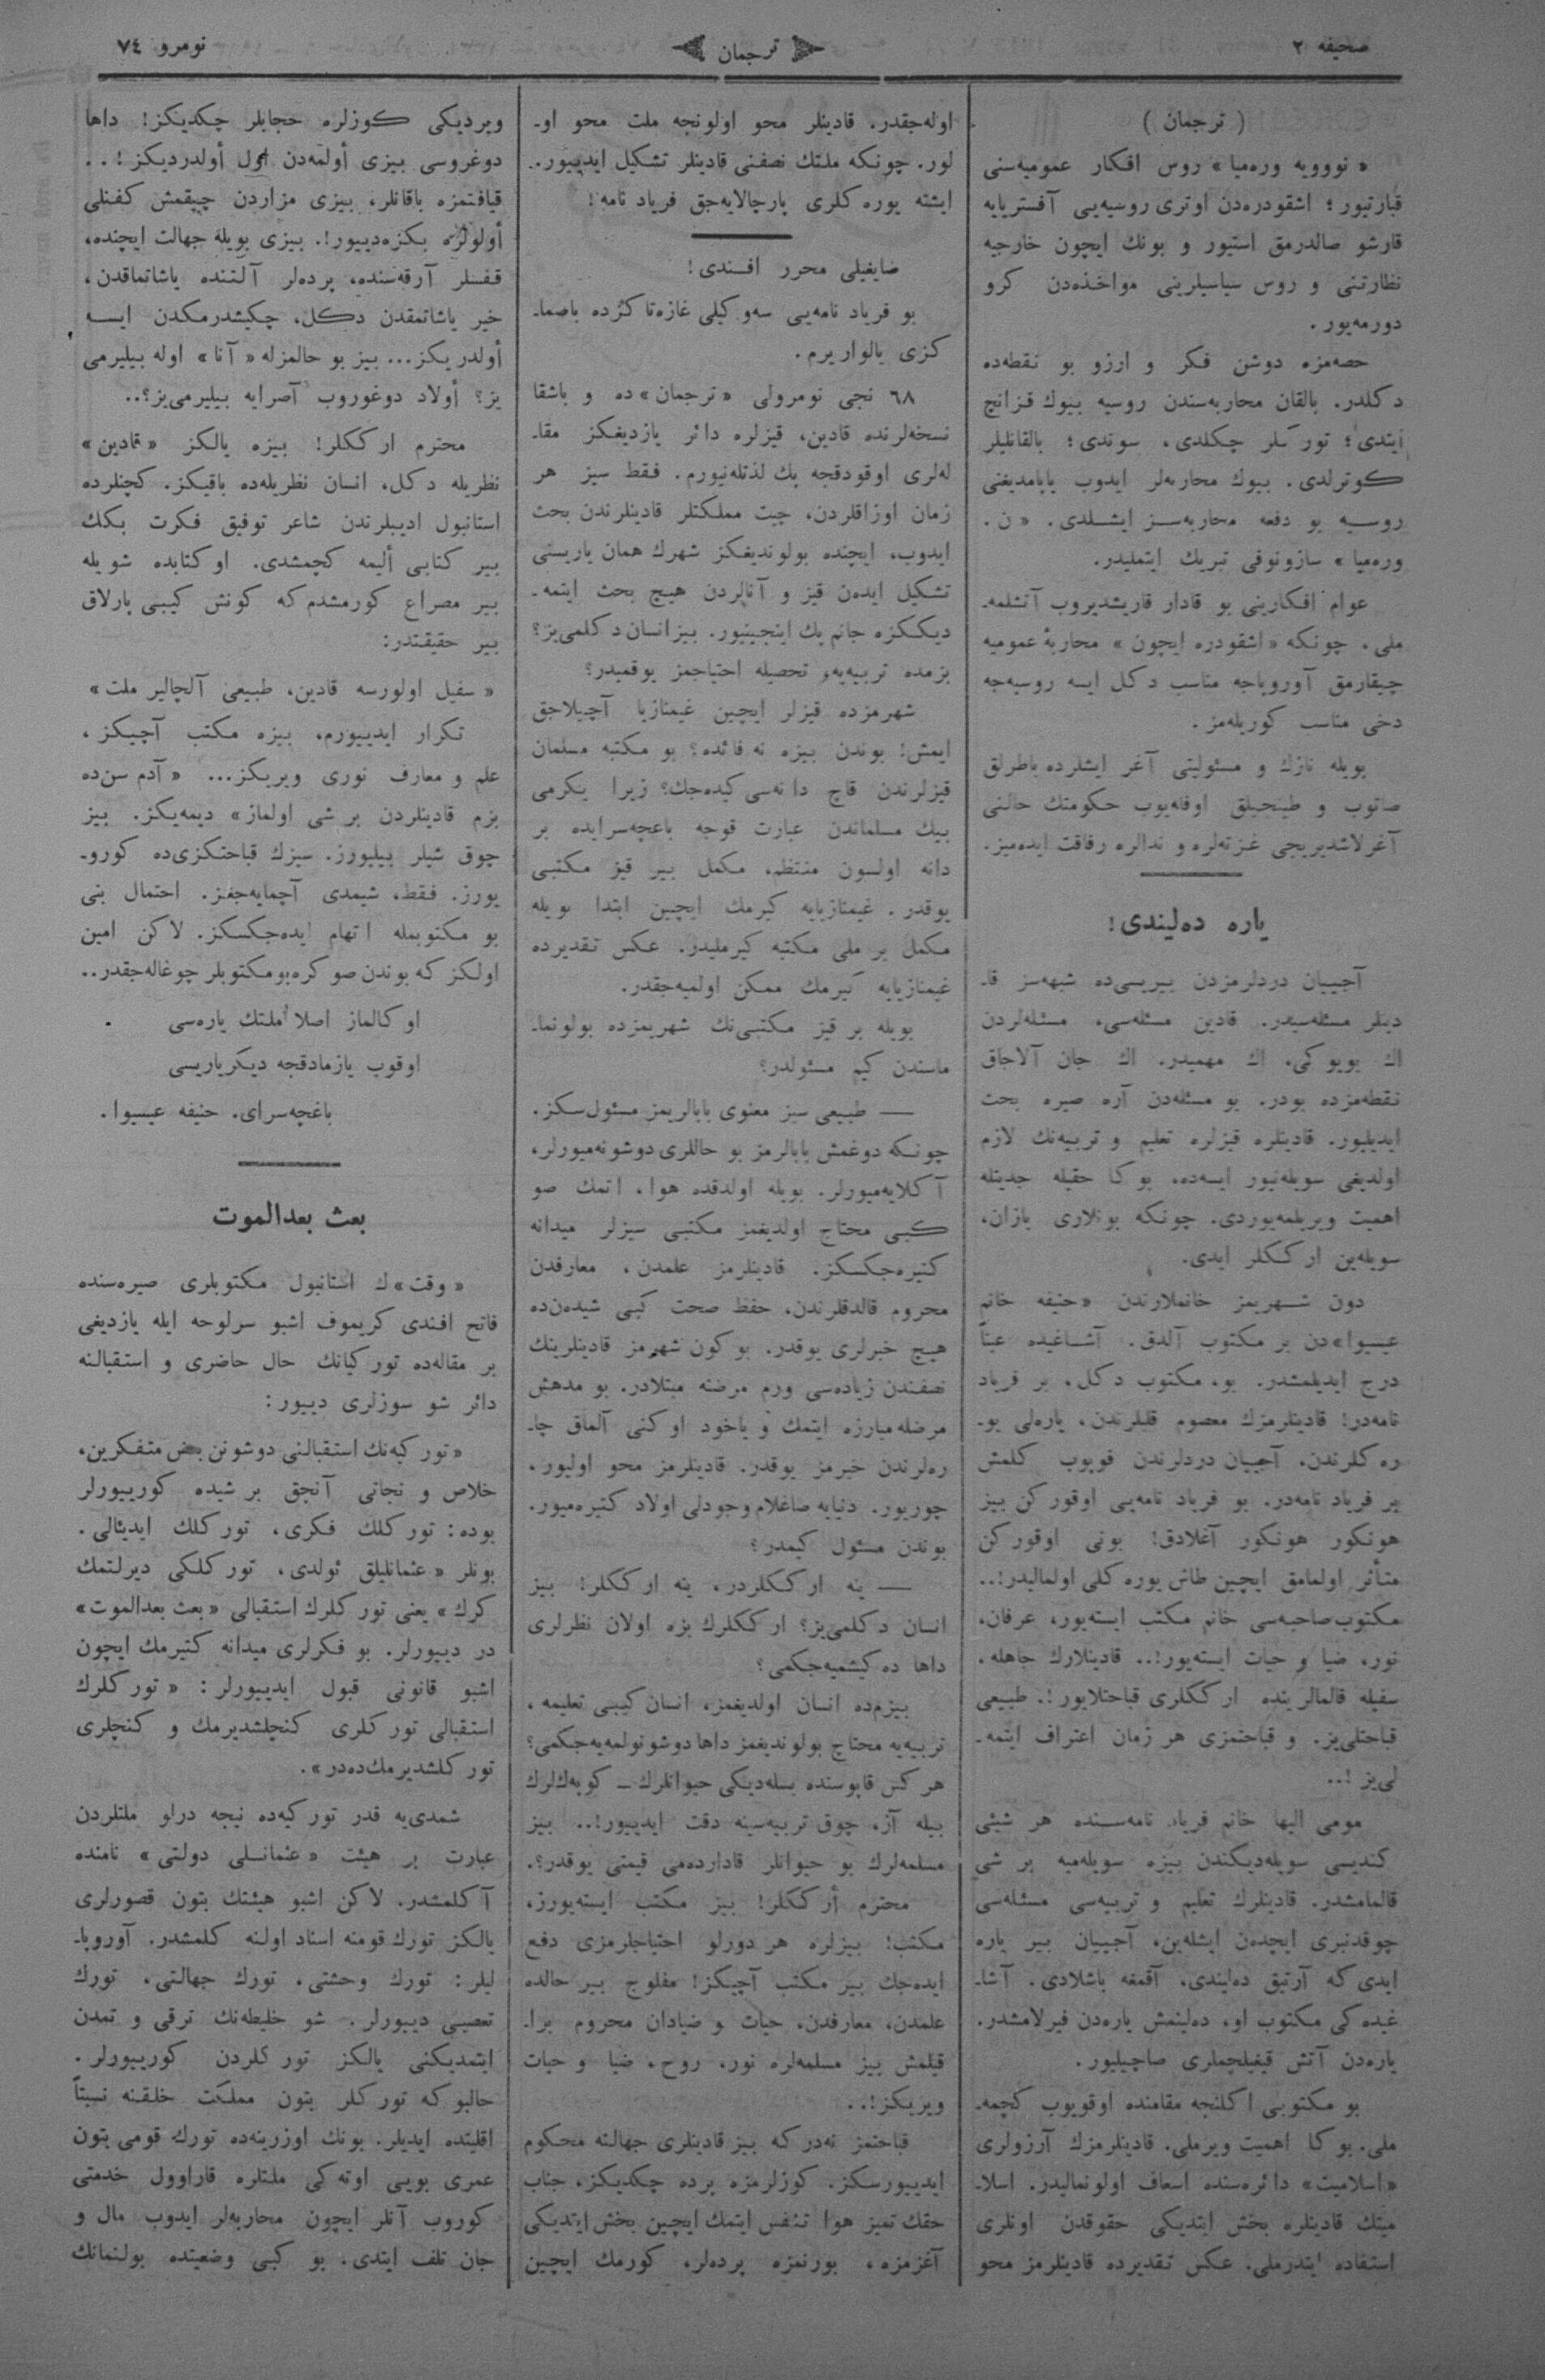 صحیفه ٢
ترجمان
نومرو ٧٤
( ترجمان )
« نوویه وره‌میا » روس افکار عمومیه‌سنی
قبارتیور ؛ اشقودره‌دن اوتری روسیه‌یی آفستریایه
قارشو صالدرمق استیور و بونك ایچون خارجیه
نظارتنی و روس سیاسیلرینی مواخذه‌دن کرو
دورمه‌یور .
حصه‌مزه دوشن فکر و ارزو بو نقطه‌ده
دکلدر. بالقان محاربه‌سندن روسیه بیوك قزانج
ایتدی ؛ تورکلر چکلدی، سوندی ؛ بالقانلیلر
کوترلدی . بیوك محاربه‌لر ایدوب یاپامدیغنی
روسیه بو دفعه محاربه‌سز ایشلدی. « ن .
وره‌میا » سازونوفی تبریك ایتملیدر.
عوام افکارینی بو قادار قاریشدیروب آتشلمه‌ـ
ملی . چونکه « اشقودره ایچون » محاربهٔ عمومیه
چیقارمق آوروپاجه مناسب دکل ایسه روسیه‌جه
دخی مناسب کوریله‌مز .
بویله نازك و مسئولیتی آغر ایشلرده باطرلق
صاتوب و طینجیلق اوفله‌یوب حکومتك حالنی
آغرلاشدیریجی غزته‌لره و ندالره رفاقت ایده‌میز.
یاره ده‌لیندی !
آجییان دردلرمزدن بیریسی‌ده شبهه‌سز قا۔
دینلر مسئله‌سیدر. قادین مسئله‌سی، مسئله‌لردن
اك بویوکی، اك مهمیدر. اك جان آلاجاق
نقطه‌مزده بودر. بو مسئله‌دن آره صیره بحث
ایدیلیور. قادینلره قیزلره تعلیم و تربیه‌نك لازم
اولدیغی سویله‌نیور ایسه‌ده، بوکا حقیله جدیتله
اهمیت ویریلمه‌یوردی. چونکه بونلاری یازان،
سویله‌ین ارککلر ایدی.
دون شهریمز خانملارندن « حنیفه خانم
عیسیوا»دن بر مکتوب آلدق. آشاغیده عیناً
درج ایدیلمشدر. بو، مکتوب دکل، بر فریاد
نامه‌در! قادینلرمزك معصوم قلبلرندن، یاره‌لی یو۔
ره‌کلرندن، آجییان دردلرندن قوپوب کلمش
بر فریاد نامه‌در. بو فریاد نامه‌یی اوقورکن بیز
هونکور هونکور آغلادق! بونی اوقورکن
متأثر اولمامق ایچین طاش یوره‌کلی اولمالیدر!..
مکتوب صاحبه‌سی خانم مکتب ایسته‌یور، عرفان،
نور، ضیا و حیات ایسته‌یور!.. قادینلارك جاهله،
سفیله قالمالرینده ارککلری قباحتلایور!. طبیعی
قباحتلی‌یز. و قباحتمزی هر زمان اعتراف ایتمه۔
لی‌یز !..
مومی الیها خانم فریاد نامه‌سنده هر شیئی
کندیسی سویله‌دیکندن بیزه سویله‌میه بر شی
قالمامشدر. قادینلرك تعلیم و تربیه‌سی مسئله‌سی
چوقدنبری ایچدن ایشله‌ین، آجییان بیر یاره
ایدی که آرتیق ده‌لیندی، آقمغه باشلادی. آشا۔
غیده‌کی مکتوب او، ده‌لینمش یاره‌دن فیرلامشدر.
یاره‌دن آتش قیغیلچملری صاچیلیور.
بو مکتوبی اکلنجه مقامنده اوقویوب کچمه۔
ملی. بوکا اهمیت ویرملی. قادینلرمزك آرزولری
«اسلامیت» دائره‌سنده اسعاف اولونمالیدر. اسلا۔
میتك قادینلره بخش ایتدیکی حقوقدن اونلری
استفاده ایتدرملی. عکس تقدیرده قادینلرمز محو
اوله‌جقدر. قادینلر محو اولونجه ملت محو او۔
لور. چونکه ملتك نصفنی قادینلر تشکیل ایدییور..
ایشته یوره‌کلری پارچالایه‌جق فریاد نامه :
ضایغیلی محرر افندی !
بو فریاد نامه‌یی سه‌وکیلی غازه‌تاکزده باصما۔
کزی یالواریرم .
٦٨ نجی نومرولی «ترجمان»ده و باشقا
نسخه‌لرنده قادین، قیزلره دائر یازدیغکز مقا۔
له‌لری اوقودقجه پك لذتله‌نیورم. فقط سیز هر
زمان اوزاقلردن، چیت مملکتلر قادینلرندن بحث
ایدوب، ایچنده بولوندیغکز شهرك همان یاریسنی
تشکیل ایدن قیز و آنالردن هیچ بحث ایتمه۔
دیککزه جانم پك اینجینیور. بیز انسان دکلمی‌یز؟
بزمده تربیه‌یه، تحصیله احتیاجمز یوقمیدر؟
شهرمزده قیزلر ایچین غیمنازیا آچیلاجق
ایمش! بوندن بیزه نه فائده؟ بو مکتبه مسلمان
قیزلرندن قاچ دانه‌سی کیده‌جك؟ زیرا یکرمی
بیك مسلماندن عبارت قوجه باغچه‌سرایده بر
دانه اولسون منتظم، مکمل بیر قیز مکتبی
یوقدر . غیمنازیایه کیرمك ایچین ابتدا بویله
مکمل بر ملی مکتبه کیرملیدر. عکس تقدیرده
غیمنازیایه کیرمك ممکن اولمیه‌جقدر.
بویله بر قیز مکتبی‌نك شهریمزده بولونما۔
ماسندن کیم مسئولدر؟
— طبیعی سیز معنوی بابالریمز مسئول‌سکز.
چونکه دوغمش بابالرمز بو حاللری دوشونه‌میورلر،
آکلایه‌میورلر. بویله اولدقده هوا، اتمك صو
کبی محتاج اولدیغمز مکتبی سیزلر میدانه
کتیره‌جکسکز. قادینلرمز علمدن، معارفدن
محروم قالدقلرندن، حفظ صحت کبی شیدن‌ده
هیچ خبرلری یوقدر. بوکون شهرمز قادینلرینك
نصفندن زیاده‌سی ورم مرضنه مبتلادر. بو مدهش
مرضله مبارزه ایتمك و یاخود اوکنی آلماق چا۔
ره‌لرندن خبرمز یوقدر. قادینلرمز محو اولیور،
چوریور. دنیایه صاغلام وجودلی اولاد کتیره‌میور.
بوندن مسئول کیمدر؟
— ینه ارککلردر، ینه ارککلر! بیز
انسان دکلمی‌یز؟ ارککلرك بزه اولان نظرلری
داها ده‌کیشمیه‌جکمی؟
بیزم‌ده انسان اولدیغمز، انسان کیبی تعلیمه،
تربیه‌یه محتاج بولوندیغمز داها دوشونولمه‌یه‌جکمی؟
هرکس قاپوسنده بسله‌دیکی حیوانلرك — کوپه‌کلرك
بیله آز، چوق تربیه‌سینه دقت ایدییور!.. بیز
مسلمه‌لرك بو حیوانلر قادارده‌می قیمتی یوقدر؟.
محترم أرککلر! بیز مکتب ایسته‌یورز،
مکتب! بیزلره هر دورلو احتیاجلرمزی دفع
ایده‌جك بیر مکتب آچیکز! مفلوج بیر حالده
علمدن، معارفدن، حیات و ضیادان محروم برا۔
قیلمش بیز مسلمه‌لره نور، روح، ضیا و حیات
ویریکز!..
قباحتمز نه‌در که بیز قادینلری جهالته محکوم
ایدییورسکز. کوزلرمزه پرده چکدیکز، جناب
حقك تمیز هوا تنفس ایتمك ایچین بخش ایتدیکی
آغزمزه ، بورنمزه پرده‌لر، کورمك ایچین
ویردیکی کوزلره حجابلر چکدیکز! داها
دوغروسی بیزی أولمه‌دن اول أولدردیکز!..
قیافتمزه باقانلر، بیزی مزاردن چیقمش کفنلی
أولولره بکزه‌دییور!. بیزی بویله جهالت ایچنده،
قفسلر آرقه‌سنده، پرده‌لر آلتنده یاشاتماقدن،
خیر یاشاتمقدن دکل، چکیشدرمکدن ایسه
أولدریکز... بیز بو حالمزله « آنا » اوله بیلیرمی
یز؟ أولاد دوغوروب آصرایه بیلیرمی‌یز؟..
محترم ارککلر! بیزه یالکز « قادین »
نظریله دکل، انسان نظریله‌ده باقیکز. کچنلرده
استانبول ادیبلرندن شاعر توفیق فکرت بکك
بیر کتابی ألیمه کچمشدی. او کتابده شویله
بیر مصراع کورمشدم که کونش کیبی پارلاق
بیر حقیقتدر:
« سفیل اولورسه قادین، طبیعی آلچالیر ملت »
تکرار ایدییورم، بیزه مکتب آچیکز،
علم و معارف نوری ویریکز... « آدم سن‌ده
بزم قادینلردن بر شی اولماز » دیمه‌یکز. بیز
چوق شیلر بیلیورز. سیزك قباحتکزی‌ده کورو۔
یورز. فقط، شیمدی آچمایه‌جغز. احتمال بنی
بو مکتوبمله اتهام ایده‌جکسکز. لاکن امین
اولکز که بوندن صوکره بو مکتوبلر چوغاله‌جقدر..
اوکالماز اصلا ملتك یاره‌سی
اوقوب یازمادقجه دیکر یاریسی
باغچه‌سرای. حنیفه عیسیوا.
بعث بعدالموت
« وقت »ك استانبول مکتوبلری صیره‌سنده
فاتح افندی کریموف اشبو سرلوحه ایله یازدیغی
بر مقاله‌ده تورکیانك حال حاضری و استقبالنه
دائر شو سوزلری دییور :
« تورکیه‌نك استقبالنی دوشونن بعض متفکرین،
خلاص و نجاتی آنجق بر شیده کورییورلر
بوده : تورکلك فکری، تورکلك ایدیئالی .
بونلر « عثمانلیلق ئولدی، تورکلکی دیرلتمك
کرك » یعنی تورکلرك استقبالی « بعث بعدالموت »
در دییورلر. بو فکرلری میدانه کتیرمك ایچون
اشبو قانونی قبول ایدییورلر : « تورکلرك
استقبالی تورکلری کنجلشدیرمك و کنجلری
تورکلشدیرمك‌ده‌در ».
شمدی‌یه قدر تورکیه‌ده نیجه درلو ملتلردن
عبارت بر هیئت « عثمانلی دولتی » نامنده
آکلمشدر. لاکن اشبو هیئتك بتون قصورلری
یالکز تورك قومنه اسناد اولنه کلمشدر. آوروپا۔
لیلر : تورك وحشتی، تورك جهالتی، تورك
تعصبی دییورلر. شو خلیطه‌نك ترقی و تمدن
ایتمدیکنی یالکز تورکلردن کورییورلر.
حالبوکه تورکلر بتون مملکت خلقنه نسبتاً
اقلیتده ایدیلر. بونك اوزرینه‌ده تورك قومی بتون
عمری بویی اوته‌کی ملتلره قاراوول خدمتی
کوروب آنلر ایچون محاربه‌لر ایدوب مال و
جان تلف ایتدی. بو کبی وضعیتده بولنمانك